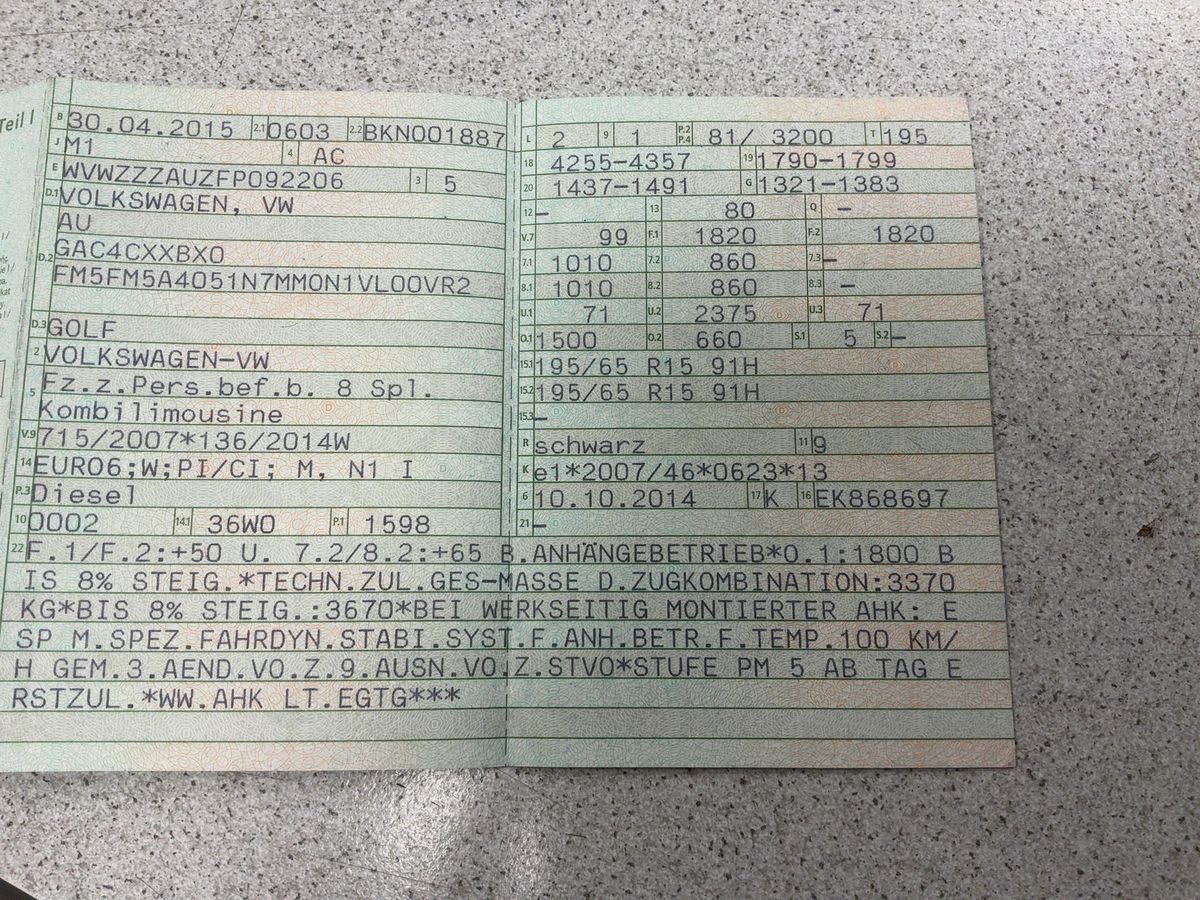 Teil I
B 30.04.2015 2.1 0603 2.2 BKN001887
J M1 4 AC
E WVWZZZAUZFP092206 3 5
D.1 VOLKSWAGEN, VW
AU
D.2 GAC4CXXBX0
FM5FM5A4051N7MMON1VL00VR2
D.3 GOLF
2 VOLKSWAGEN-VW
5 Fz.z.Pers.bef.b. 8 Spl.
Kombilimousine
V.9 715/2007*136/2014W
14 EURO6;W;PI/CI; M, N1 I
P.3 Diesel
10 0002 14.1 36W0 P.1 1598
L 2 9 1 P.2 P.4 81/ 3200 T 195
18 4255-4357 19 1790-1799
20 1437-1491 G 1321-1383
12 – 13 80 Q –
V.7 99 F.1 1820 F.2 1820
7.1 1010 7.2 860 7.3 –
8.1 1010 8.2 860 8.3 –
U.1 71 U.2 2375 U.3 71
O.1 1500 O.2 660 S.1 5 S.2 –
15.1 195/65 R15 91H
15.2 195/65 R15 91H
15.3 –
R schwarz 11 9
K e1*2007/46*0623*13
6 10.10.2014 17 K 16 EK868697
21 –
22 F.1/F.2:+50 U. 7.2/8.2:+65 B.ANHÄNGEBETRIEB*O.1:1800 B
IS 8% STEIG.*TECHN.ZUL.GES-MASSE D.ZUGKOMBINATION:3370
KG*BIS 8% STEIG.:3670*BEI WERKSEITIG MONTIERTER AHK: E
SP M.SPEZ.FAHRDYN.STABI.SYST.F.ANH.BETR.F.TEMP.100 KM/
H GEM.3.AEND.VO.Z.9.AUSN.VO.Z.STVO*STUFE PM 5 AB TAG E
RSTZUL.*WW.AHK LT.EGTG***